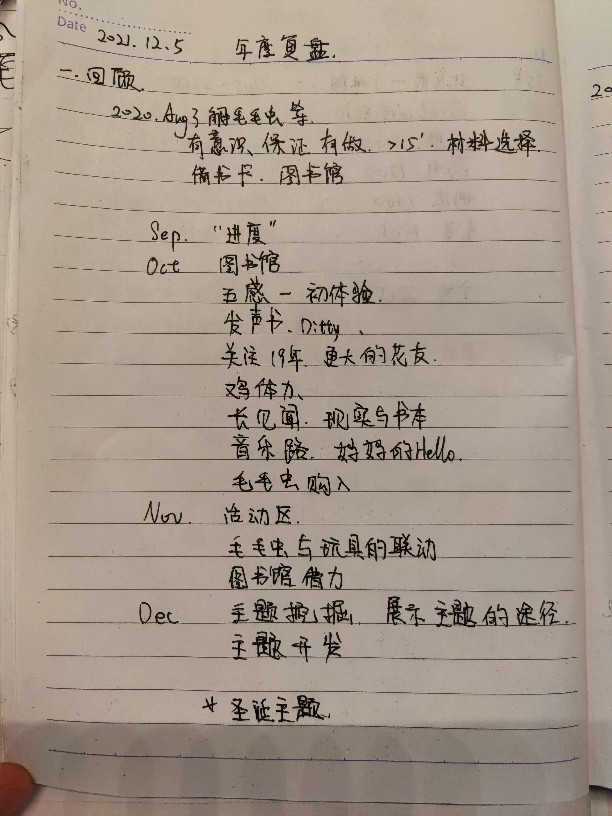 No.
Date 2021.12.5 年度复盘.
一.回顾.
2020.Aug 了解毛毛虫等
有意识、保证有做. >15'. 材料选择.
借书卡. 图书馆
Sep. "进度"
Oct 图书馆
五感 — 初体验.
发声书、Ditty、
关注19年 更大的花友.
鸡体力、
长见闻. 现实与书本
音乐路. 妈妈的Hello.
毛毛虫购入
Nov. 活动区.
毛毛虫与玩具的联动
图书馆借力
Dec 主题挖掘, 展示主题的途径.
主题开发
* 圣诞主题.
20